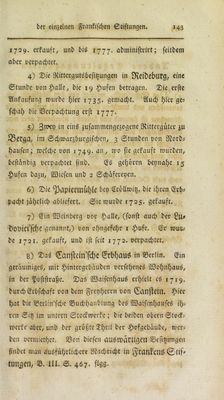 der einzelnen Frankischen Stiftungen. 143
1729. erkauft, und bis 1777. administrirt; seitdem
aber verpachtet.
4) Die Rittergutsbesitzungen in Reideburg, eine
Stunde von Halle, die 19 Hufen betragen. Die erste
Ankaufung wurde hier 1735. gemacht. Auch hier ge-
schah die Verpachtung erst 1777.
5) Zwey in eins zusammengezogene Rittergüter zu
Berga, im Schwarzburgischen, 3 Stunden von Nord-
hausen; welche von 1749. an, wo sie gekauft wurden,
beständig verpachtet sind. Es gehören beynahe 15
Hufen dazu, Wiesen und 2 Schäfereyen.
6) Die Papiermühle bey Cröllwitz, die ihren Erb-
pacht jährlich abliefert. Sie wurde 1725. gekauft.
7) Ein Weinberg vor Halle, (sonst auch der Lu-
dovicische genannt,) von ohngefehr 1 Hufe. Er wur-
de 1721. gekauft, und ist seit 1772. verpachtet.
8) Das Canstein'sche Erbhaus in Berlin. Ein
geräumiges, mit Hintergebäuden versehenes Wohnhaus,
in der Poststraße. Das Waisenhaus erhielt es 1719.
durch Erbschaft von dem Freyherrn von Canstein. Hier
hat die Berlin'sche Buchhandlung des Waisenhauses ih-
ren Sitz im untern Stockwerke; die beiden obern Stock-
werke aber, und der größte Theil der Hofgebäude, wer-
den vermiethet. Von diesen auswärtigen Besitzungen
findet man ausführlichere Nachricht in Frankens Stif-
tungen, B. III. S. 467. flgg.